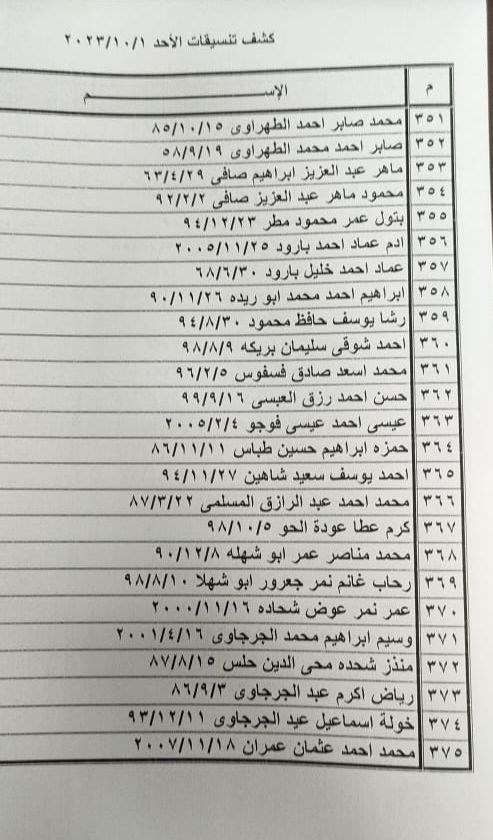 كشف تنسيقات الأحد ٢٠٢٣/١٠/١
م الإســـــــــم
٣٥١ محمد صابر احمد الطهراوى ٨٥/١٠/١٥
٣٥٢ صابر احمد محمد الطهراوى ٥٨/٩/١٩
٣٥٣ ماهر عبد العزيز ابراهيم صافى ٦٣/٤/٢٩
٣٥٤ محمود ماهر عبد العزيز صافى ٩٢/٢/٢
٣٥٥ بتول عمر محمود مطر ٩٤/١٢/٢٣
٣٥٦ ادم عماد احمد بارود ٢٠٠٥/١١/٢٥
٣٥٧ عماد احمد خليل بارود ٦٨/٦/٣٠
٣٥٨ ابراهيم احمد محمد ابو ريده ٩٠/١١/٢٦
٣٥٩ رشا يوسف حافظ محمود ٩٤/٨/٣٠
٣٦٠ احمد شوقى سليمان بريكه ٩٨/٨/٩
٣٦١ محمد اسعد صادق فسفوس ٩٦/٢/٥
٣٦٢ حسن احمد رزق العبسى ٩٩/٩/١٦
٣٦٣ عيسى احمد عيسى فوجو ٢٠٠٥/٢/٤
٣٦٤ حمزه ابراهيم حسين طباس ٨٦/١١/١١
٣٦٥ احمد يوسف سعيد شاهين ٩٤/١١/٢٧
٣٦٦ محمد احمد عبد الرازق المسلمى ٨٧/٣/٢٢
٣٦٧ كرم عطا عودة الحو ٩٨/١٠/٥
٣٦٨ محمد مناصر عمر ابو شهله ٩٠/١٢/٨
٣٦٩ رحاب غانم نمر جعرور ابو شهلا ٩٨/٨/١٠
٣٧٠ عمر نمر عوض شحاده ٢٠٠٠/١١/١٦
٣٧١ وسيم ابراهيم محمد الجرجاوى ٢٠٠١/٤/١٦
٣٧٢ منذز شحده محى الدين حلس ٨٧/٨/١٥
٣٧٣ رياض اكرم عبد الجرجاوى ٨٦/٩/٣
٣٧٤ خولة اسماعيل عيد الجرجاوى ٩٣/١٢/١١
٣٧٥ محمد احمد عثمان عمران ٢٠٠٧/١١/١٨